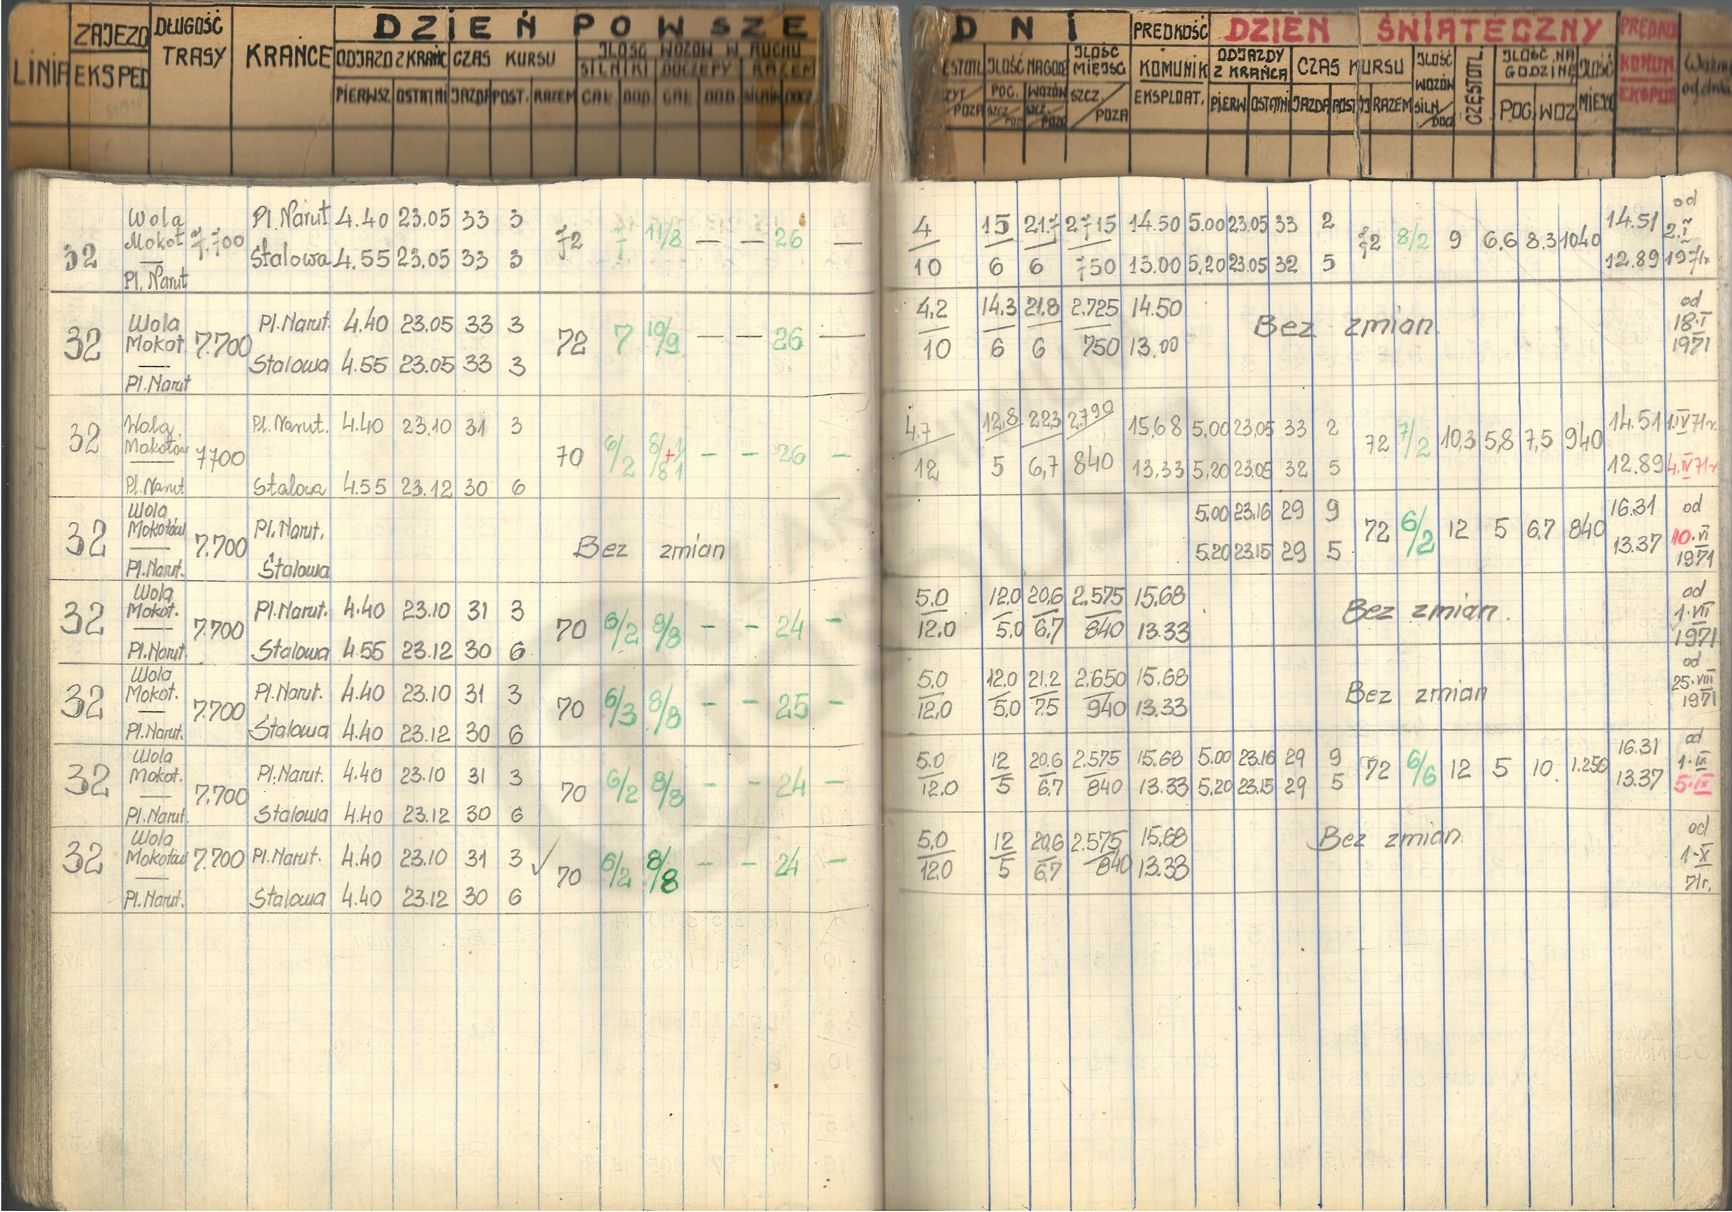 DZIEŃ POWSZE DNI DZIEŃ ŚWIĄTECZNY
LINIA ZAJEZD EKSPED DŁUGOŚĆ TRASY KRAŃCE ODJAZD Z KRAŃC CZAS KURSU ILOŚĆ WOZÓW W RUCHU
SILNIKI DOCZEPY RAZEM
PIERWSZ OSTATNI JAZDA POST. RAZEM CAŁ. DOD. CAŁ. DOD. SILNIK DOCZ.
ILOŚĆ NA GODZ ILOŚĆ MIEJSC PRĘDKOŚĆ KOMUNIK EKSPLOAT.
POC. WOZÓW SZCZ. POZA
ODJAZDY Z KRAŃCA CZAS KURSU ILOŚĆ WOZÓW SILN DOCZ CZĘSTOTL. ILOŚĆ NA GODZINĘ ILOŚĆ MIEJSC PRĘDKO KOMUN. EKSPLOT
PIERW OSTATNI JAZDA POST RAZEM POC. WOZ
32 Wola Mokot Pl. Narut 7.700
Pl. Narut 4.40 23.05 33 3 72 7 11/8 — — 26 —
Stalowa 4.55 23.05 33 3
4 15 21.7 2715 14.50 5.00 23.05 33 2 72 8/2 9 6,6 8.3 1040 14.51 od 2.I 1971r
10 6 6 750 13.00 5,20 23.05 32 5 12.89
32 Wola Mokot. Pl. Narut 7.700
Pl. Narut. 4.40 23.05 33 3 72 7 10/9 — — 26 —
Stalowa 4.55 23.05 33 3
4,2 14,3 21,8 2.725 14.50 Bez zmian od 18.I 1971
10 6 6 750 13.00
32 Wola Mokotów Pl. Narut 7700
Pl. Narut. 4.40 23.10 31 3 70 6/2 – – 26 –
Stalowa 4.55 23.12 30 6
4.7 12,8 22,3 2.790 15,68 5,00 23,05 33 2 72 7/2 10,3 5,8 7,5 940 14.51 1.IV 71r.
12 5 6,7 840 13,33 5,20 23.05 32 5 12.89 4.IV 71r
32 Wola Mokotów Pl. Narut. 7.700
Pl. Narut. Stalowa Bez zmian
5.00 23.16 29 9 72 6/2 12 5 6,7 840 16.31 od 10.VI 1971
5.20 23.15 29 5 13.37
32 Wola Mokot. Pl. Narut. 7.700
Pl. Narut. 4.40 23.10 31 3 70 6/2 8/8 – – 24 –
Stalowa 4.55 23.12 30 6
5.0 12.0 20,6 2.575 15.68 Bez zmian. od 1.VII 1971
12.0 5,0 6,7 840 13.33
32 Wola Mokot. Pl. Narut. 7.700
Pl. Narut. 4.40 23.10 31 3 70 6/3 8/8 – – 25 –
Stalowa 4.40 23.12 30 6
5.0 12.0 21,2 2.650 15.68 Bez zmian od 25.VIII 1971
12,0 5,0 7,5 940 13.33
32 Wola Mokot. Pl. Narut. 7.700
Pl. Narut. 4.40 23.10 31 3 70 6/2 8/8 – – 24 –
Stalowa 4.40 23.12 30 6
5.0 12 20,6 2.575 15.68 5.00 23.16 29 9 72 6/6 12 5 10. 1.256 16.31 od 1.IX
12.0 5 6,7 840 13.33 5.20 23.15 29 5 13.37 5.IX
32 Wola Mokotów Pl. Narut. 7.700
Pl. Narut. 4.40 23.10 31 3 70 6/2 8/8 – – 24 –
Stalowa 4.40 23.12 30 6
5.0 12 20,6 2.575 15.68 Bez zmian od 1.X 71r.
12.0 5 6,7 840 13.33